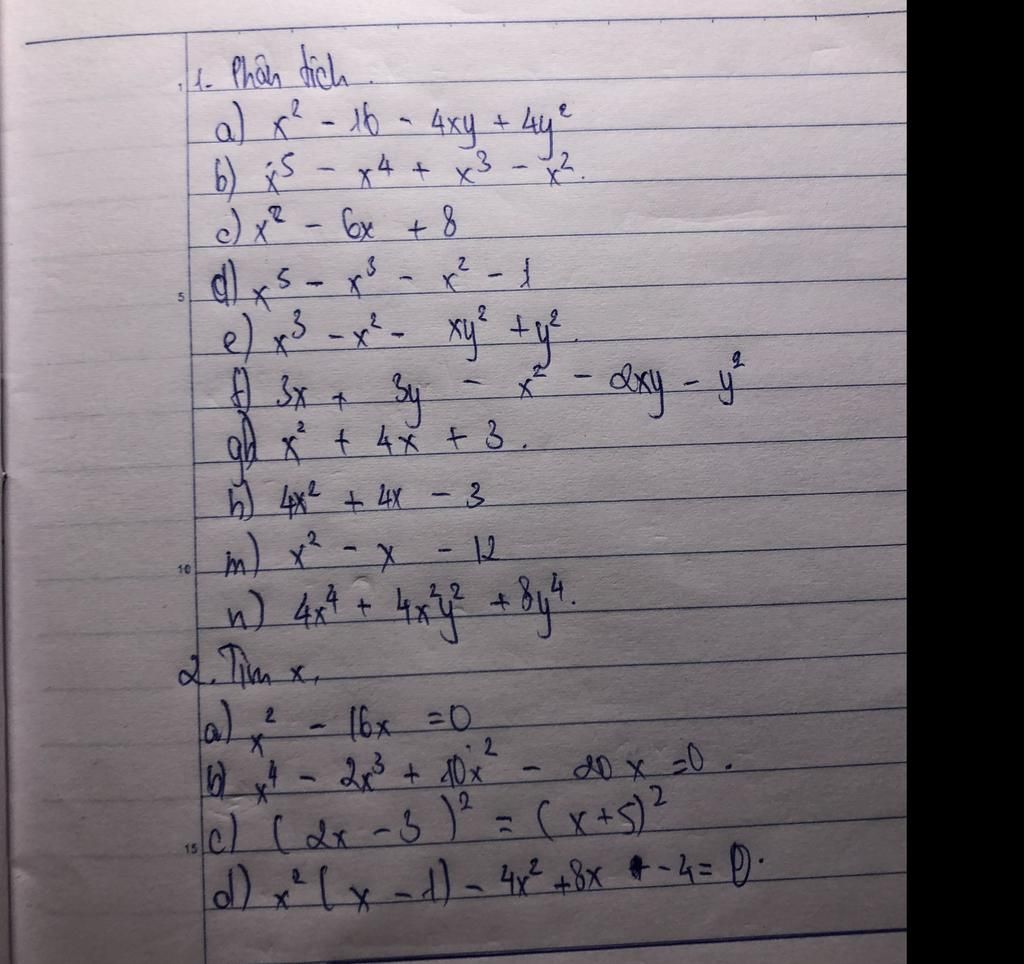 1. Phân tích.
a) x² - 16 - 4xy + 4y²
b) x⁵ - x⁴ + x³ - x².
c) x² - 6x + 8
5 d) x⁵ - x³ - x² - 1
e) x³ - x² - xy² + y².
f) 3x + 3y - x² - 2xy - y²
g) x² + 4x + 3.
h) 4x² + 4x - 3
10 m) x² - x - 12
n) 4x⁴ + 4x²y² + 8y⁴.
2. Tìm x.
a) x² - 16x = 0
b) x⁴ - 2x³ + 10x² - 20x = 0.
15 c) (2x - 3)² = (x + 5)²
d) x² (x - 1) - 4x² + 8x - 4 = 0.